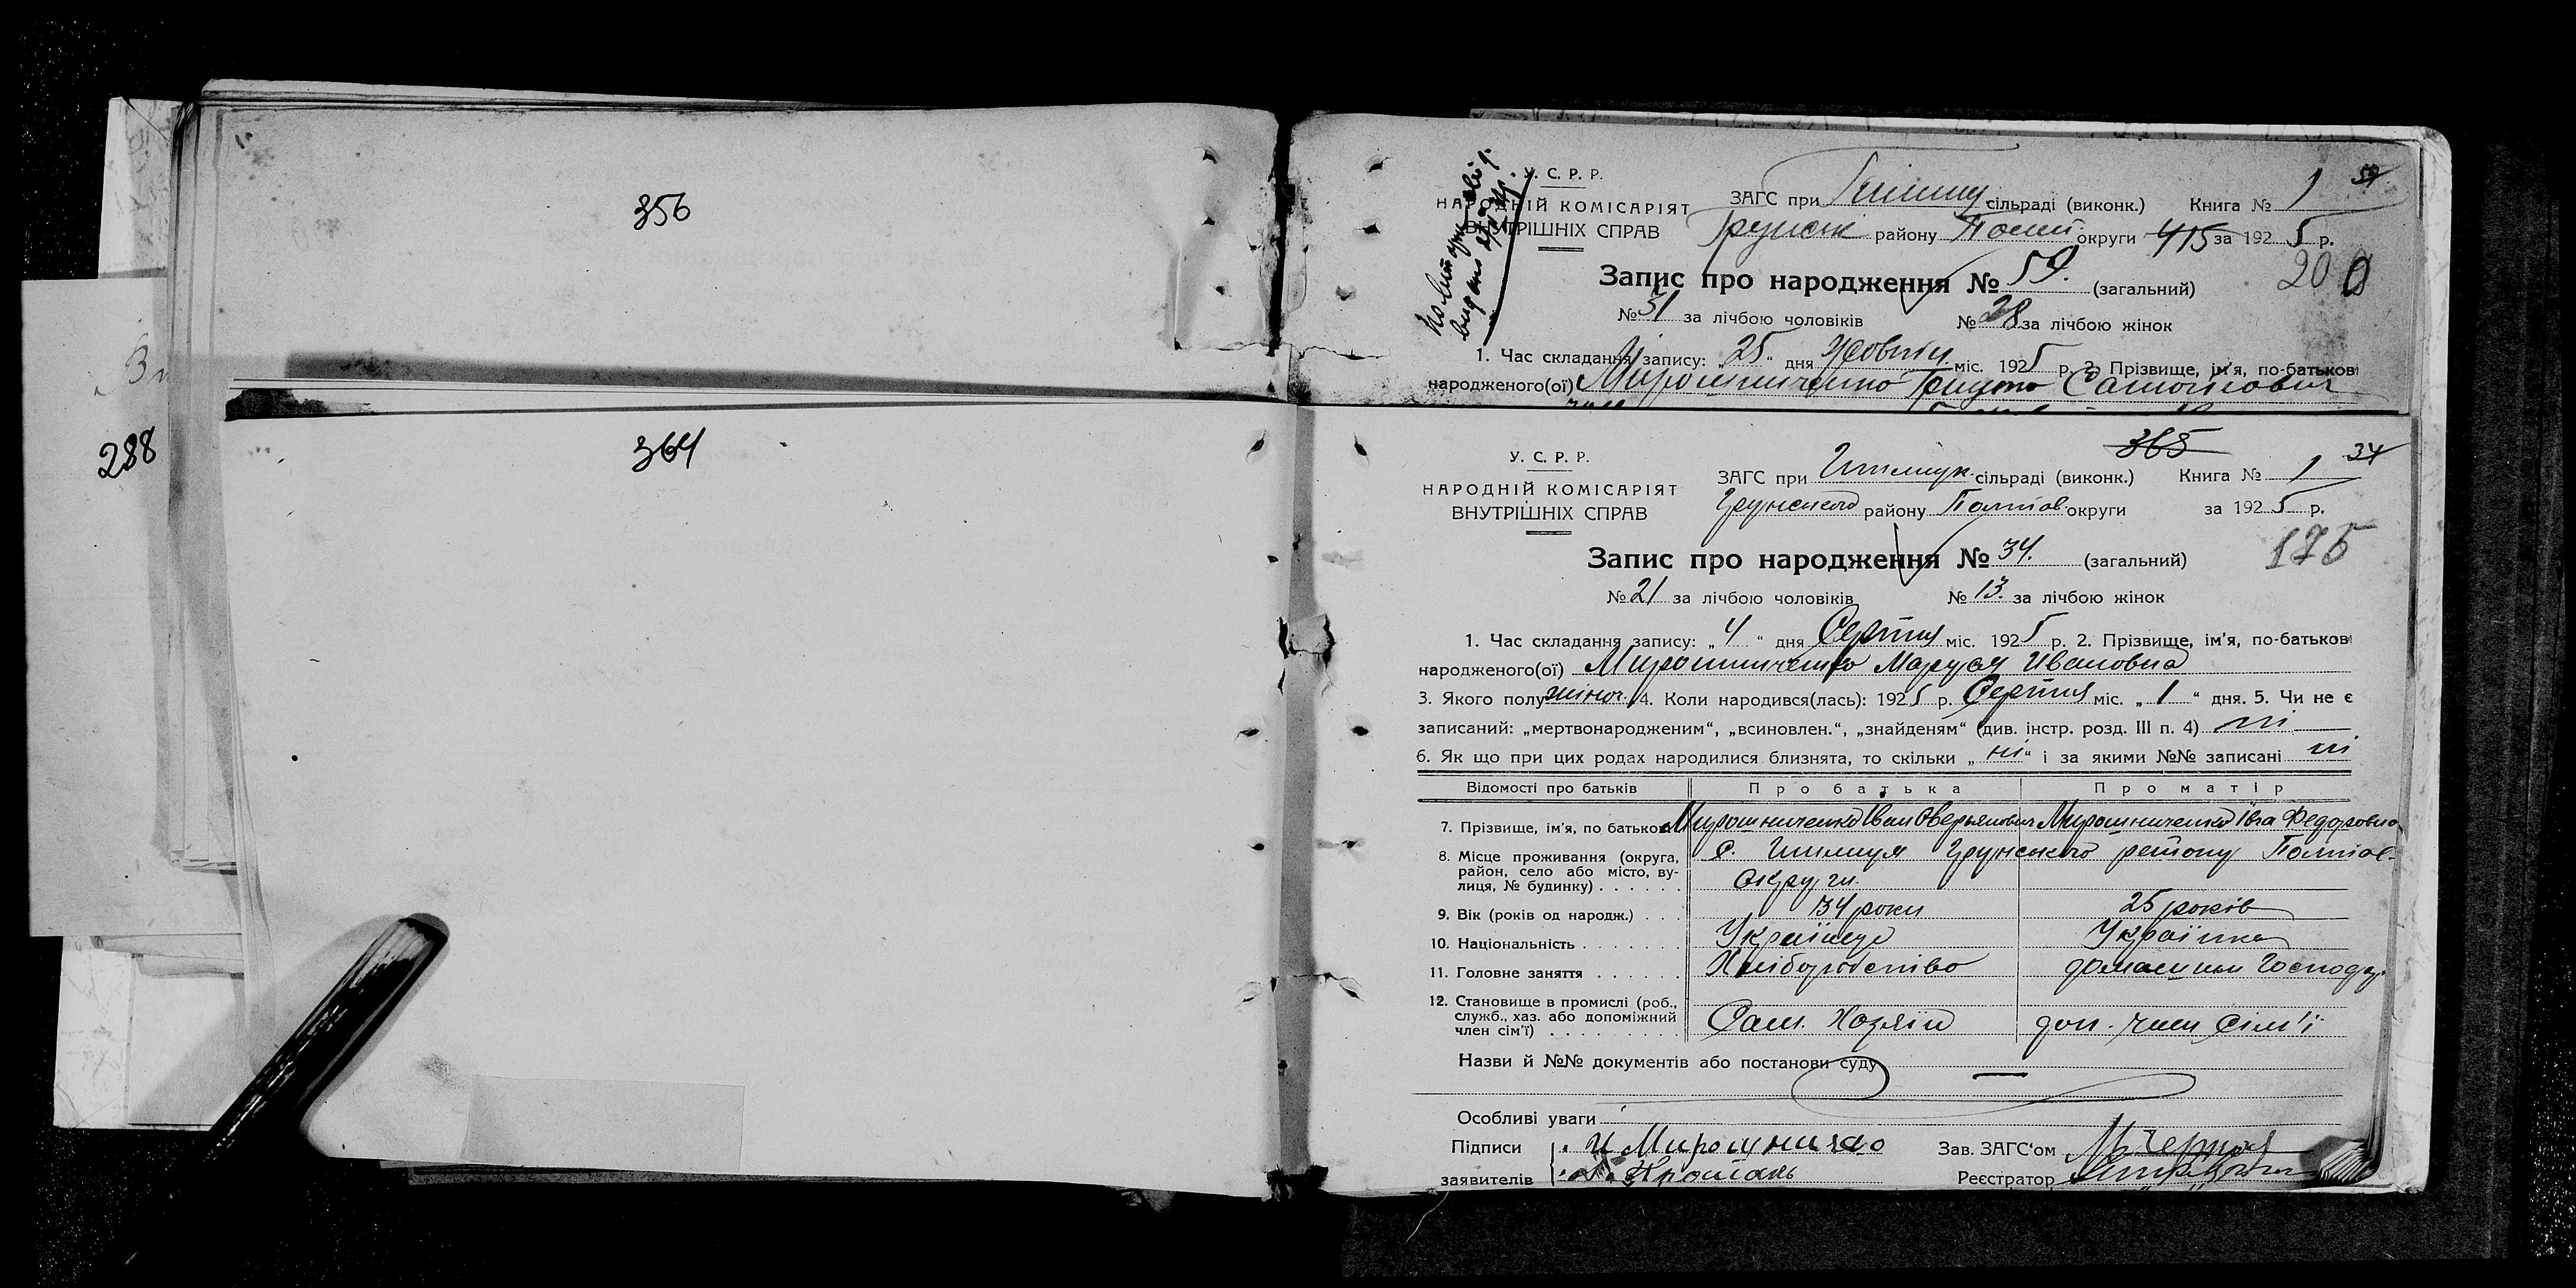 356
У. С. Р. Р.
НАРОДНІЙ КОМІСАРІЯТ
ВНУТРІШНІХ СПРАВ
ЗАГС при сільраді (виконк.) Книга № 1 59
району Полт округи 415 за 1925 р.
200
Запис про народження № 59. (загальний)
№ 31 за лічбою чоловіків № 28 за лічбою жінок
1. Час складання запису: „25“ дня Жовтн міс. 1925 р. 2. Прізвище, ім'я, по-батькові
народженого(ої) Мирошниченко
288
364
365
У. С. Р. Р.
НАРОДНІЙ КОМІСАРІЯТ
ВНУТРІШНІХ СПРАВ
ЗАГС при сільраді (виконк.) Книга № 1 34
Грунського району Полтав. округи за 1925 р.
175
Запис про народження № 34. (загальний)
№ 21 за лічбою чоловіків № 13. за лічбою жінок
1. Час складання запису: „4“ дня Серпня міс. 1925 р. 2. Прізвище, ім'я, по-батькові
народженого(ої) Мирошниченко Маруся Ивановна
3. Якого полу жіноч. 4. Коли народився(лась): 1925 р. Серпня міс. „1“ дня. 5. Чи не є
записаний: „мертвонародженим“, „всиновлен.“, „знайденям“ (див. інстр. розд. III п. 4) ні
6. Як що при цих родах народилися близнята, то скільки „ні“ і за якими №№ записані ні
Відомості про батьків Про батька Про матір
7. Прізвище, ім'я, по батькові Мирошниченко Иван Оверьянович Мирошниченко Івга Федоровна
8. Місце проживання (округа, район, село або місто, вулиця, № будинку) С. Грунського району Полтав. округи.
9. Вік (років од народж.) 34 роки 25 років
10. Національність Українец Українка
11. Головне заняття Хліборобство домашнєи Господар.
12. Становище в промислі (роб., служб., хаз. або допоміжний член сім'ї) Сам. Хозяїн доп. член сім'ї
Назви й №№ документів або постанови суду —
Особливі уваги
Підписи И Мирошничео Зав. ЗАГС'ом
заявителів Реєстратор